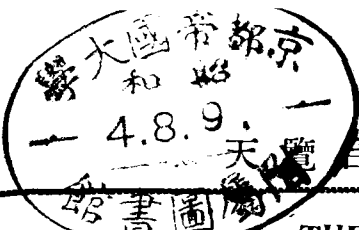 京都帝國大學
昭和
4.8.9.
天覽
圖書館